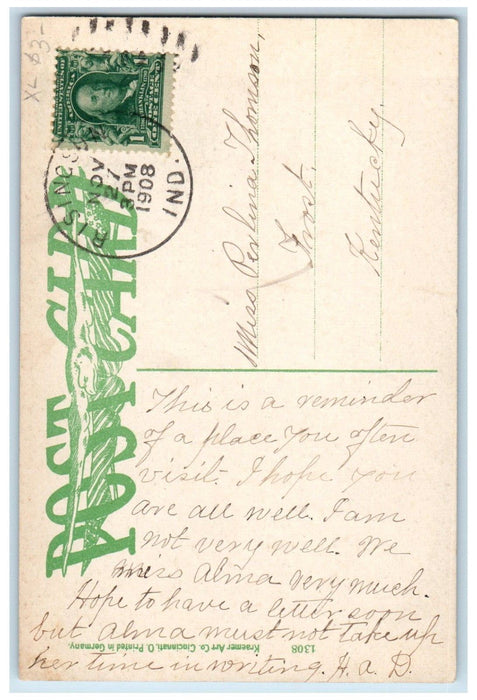 XL 83-
RISING SUN
NOV
27
3 PM
1908
IND.
POST CARD
Miss Perlina Thomson,
Frost,
Kentucky.
This is a reminder
of a place you often
visit. I hope you
are all well. I am
not very well. We
miss Alma very much.
Hope to have a letter soon
but Alma must not take up
her time in writing. H. A. D.
1308 Kraemer Art Co. Cincinnati, O. Printed in Germany.